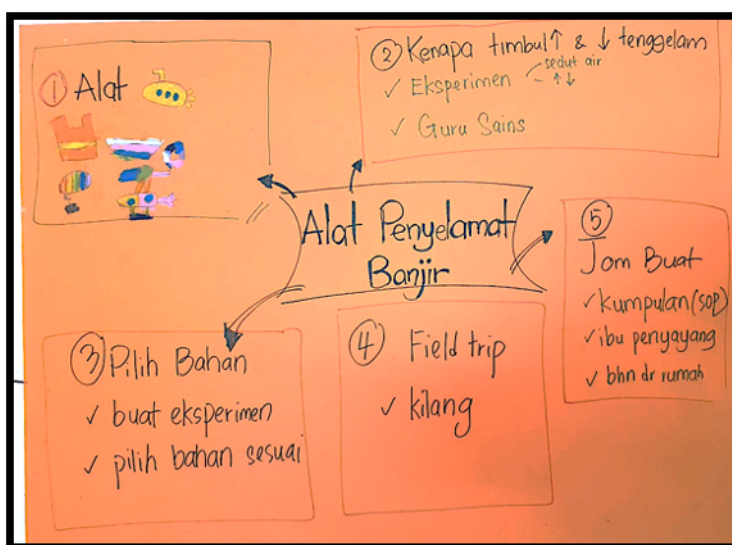 ① Alat
② Kenapa timbul↑ & ↓ tenggelam
✓ Eksperimen - sedut air
- ↑↓
✓ Guru Sains
Alat Penyelamat
Banjir
③ Pilih Bahan
✓ buat eksperimen
✓ pilih bahan sesuai
④ Field trip
✓ kilang
⑤
Jom Buat
✓ kumpulan (sop)
✓ ibu penyayang
✓ bhn dr rumah